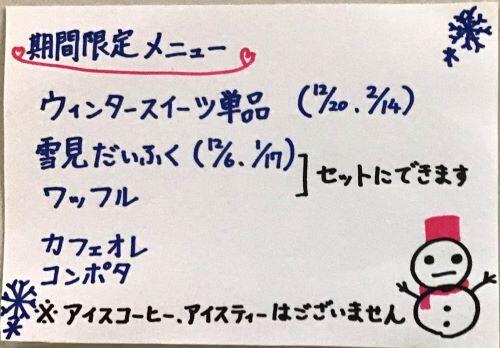 期間限定メニュー
ウィンタースイーツ単品 (12/20、2/14)
雪見だいふく (12/6、1/17)
セットにできます
ワッフル
カフェオレ
コンポタ
※ アイスコーヒー、アイスティーはございません